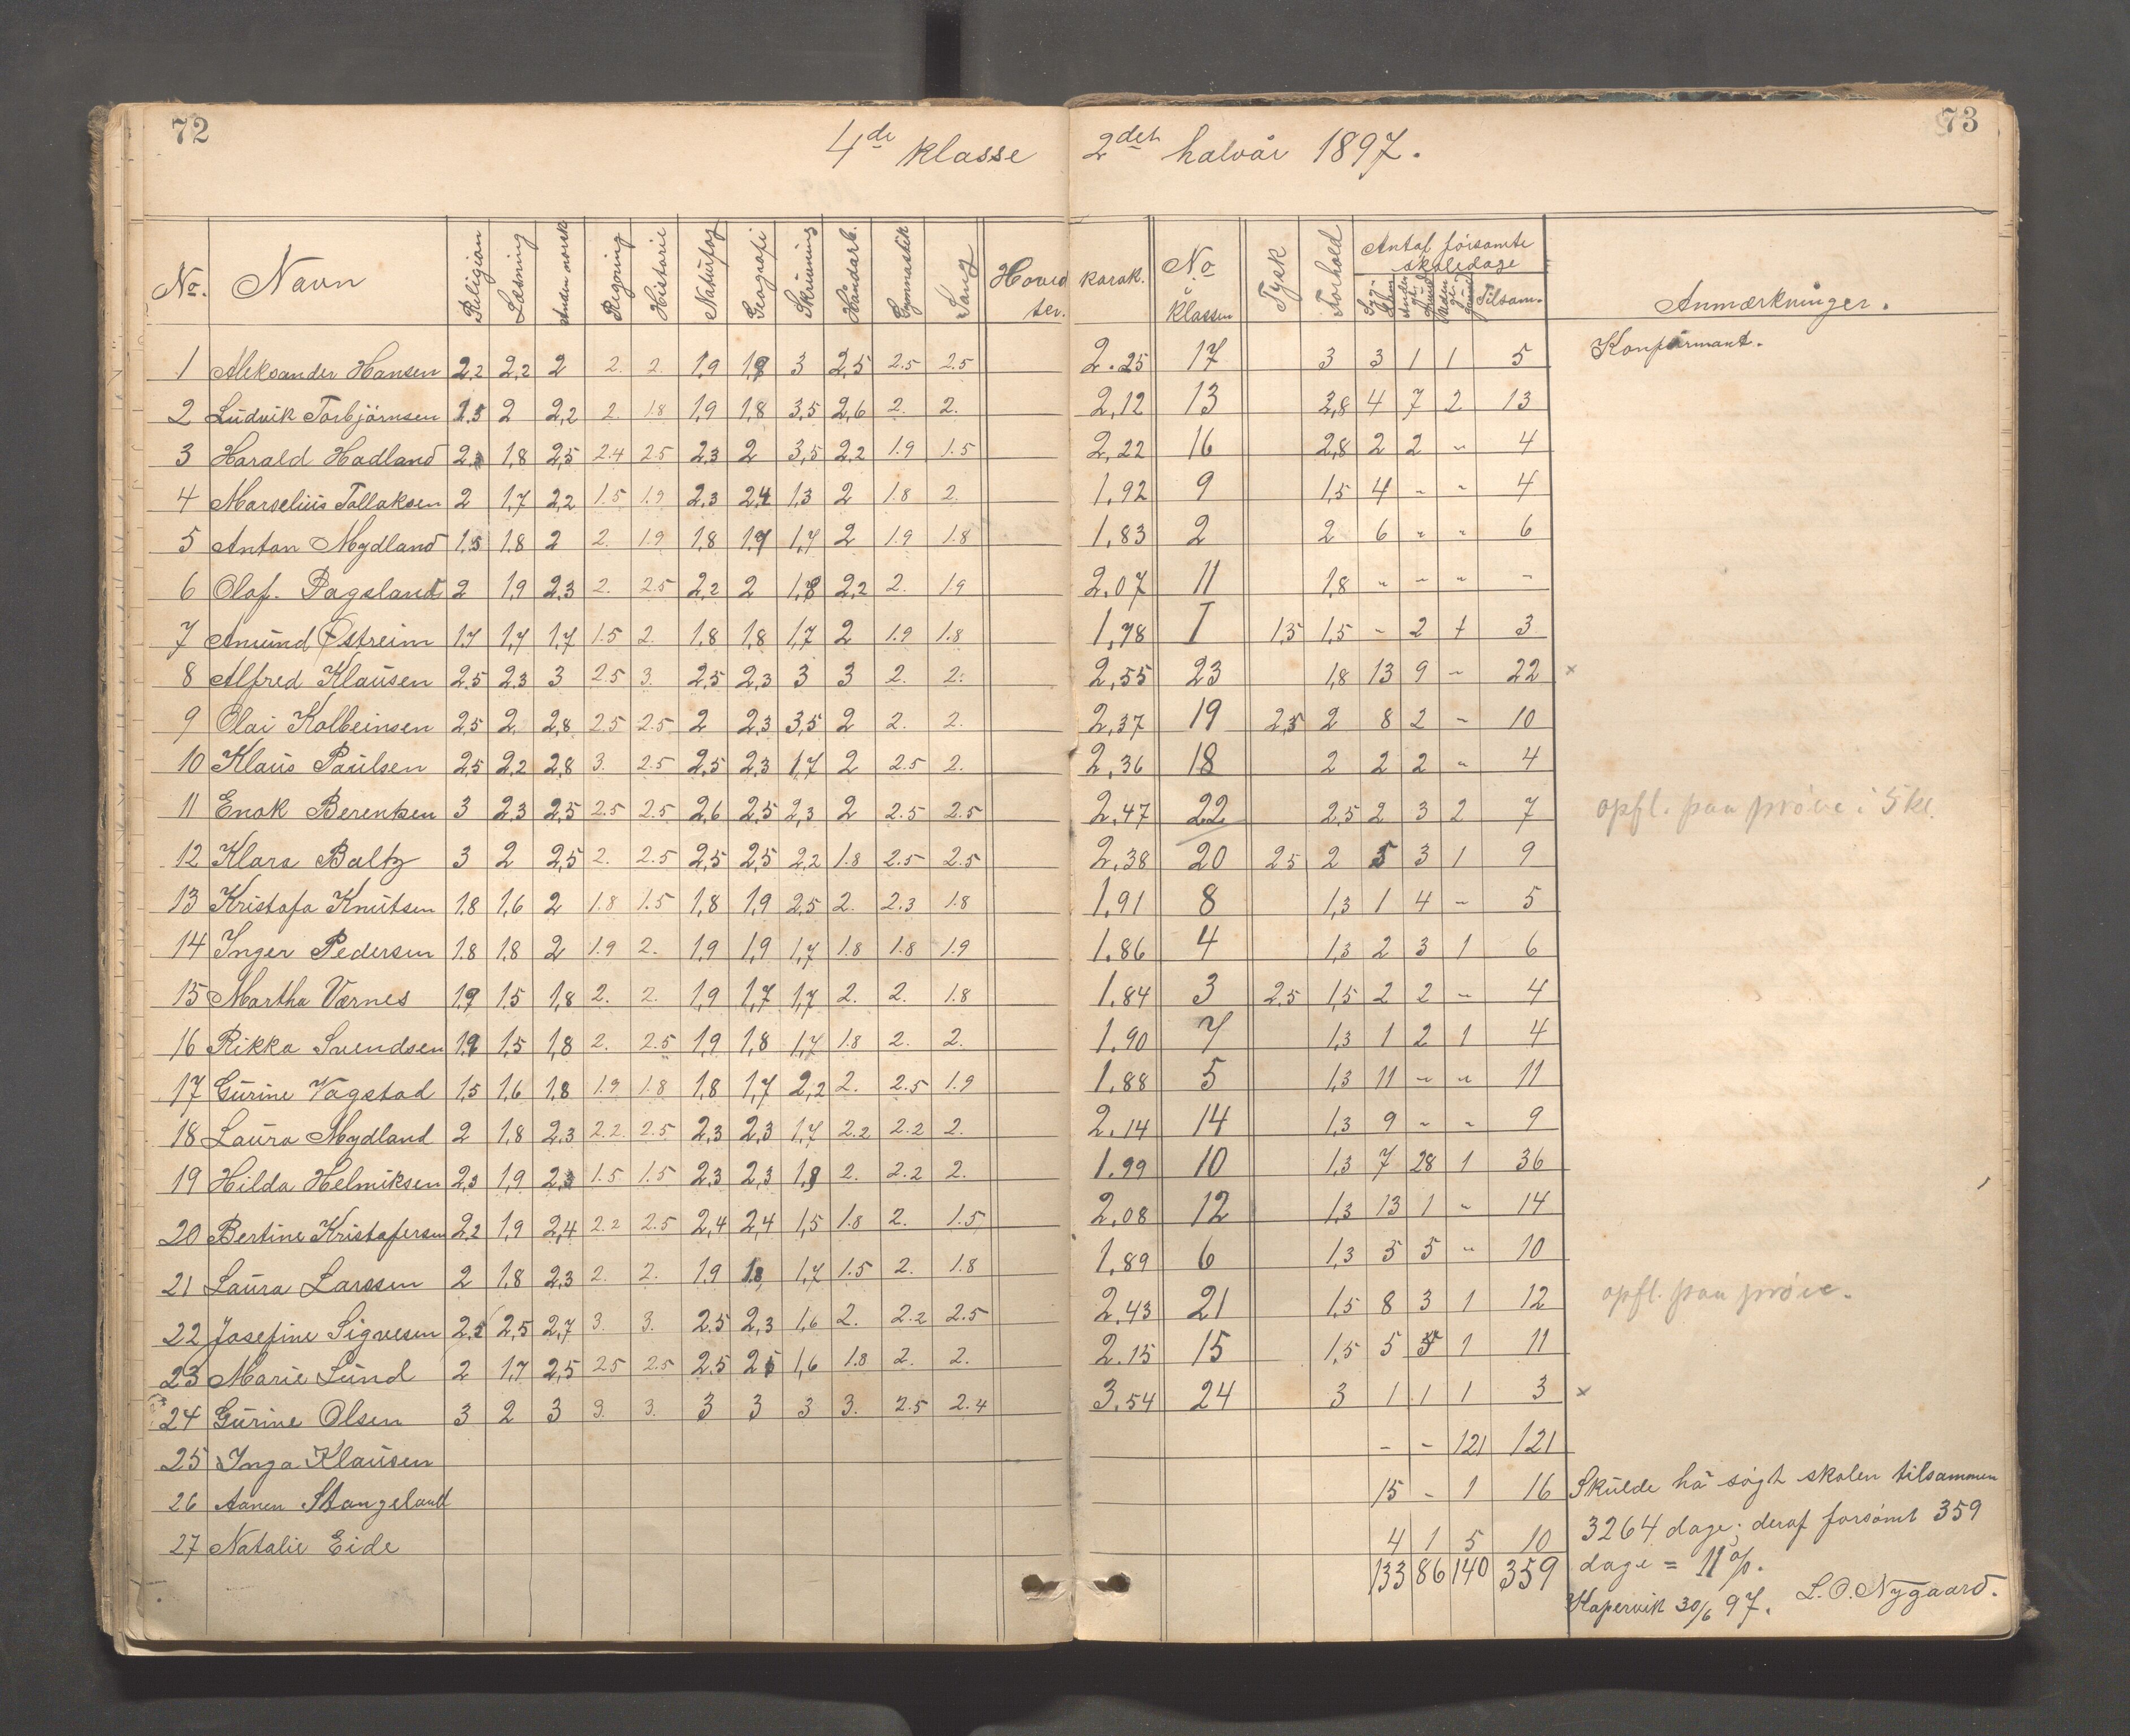 72
73
4de klasse 2det halvår 1897.
No. Navn Religion Læsning Anden norsk Regning Historie Naturfag Geografi Skrivning Håndarb. Gymnastik Sang Hovedkarakter. No i klassen Tysk Forhold Antal forsømte skoledage Anmærkninger.
Tilsam.
1 Aleksander Hansen 2,2 2,2 2 2. 2. 1,9 1,9 3 2,5 2.5 2.5 2.25 17 3 3 1 1 5 Konfirmant.
2 Ludvik Torbjörnsen 2,5 2 2,2 2. 1.8 1,9 1,8 3,5 2,6 2. 2. 2,12 13 2,8 4 7 2 13
3 Harald Hadland 2,3 1,8 2,5 2.4 2.5 2,3 2 3,5 2,2 1.9 1.5 2,22 16 2,8 2 2 " 4
4 Marselius Tollaksen 2 1,7 2,2 1.5 1.9 2,3 2,4 1,3 2 1.8 2. 1,92 9 1,5 4 " " 4
5 Anton Mydland 1,5 1,8 2 2. 1.9 1,8 1,7 1,7 2 1.9 1.8 1,83 2 2 6 " " 6
6 Olaf. Dagsland 2 1,9 2,3 2. 2.5 2,2 2 1,8 2,2 2. 1.9 2.07 11 1,8 " " " "
7 Amund Østreim 1,7 1,7 1,7 1.5 2. 1,8 1,8 1,7 2 1.9 1.8 1,78 1 1,5 1,5 - 2 1 3
8 Alfred Klausen 2,5 2,3 3 2.5 3. 2,5 2,3 3 3 2. 2. 2,55 23 1,8 13 9 " 22 x
9 Olai Kolbeinsen 2,5 2 2,8 2.5 2.5 2 2,3 3,5 2 2. 2. 2,37 19 2,5 2 8 2 - 10
10 Klaus Paulsen 2,5 2,2 2,8 3. 2.5 2,5 2,3 1,7 2 2.5 2. 2,36 18 2 2 2 " 4
11 Enok Berentsen 3 2,3 2,5 2.5 2.5 2,6 2,5 2,3 2 2.5 2.5 2,47 22 2,5 2 3 2 7 opfl. paa prøve i 5 kl.
12 Klara Baltz 3 2 2,5 2. 2.5 2,5 2,5 2,2 1.8 2.5 2.5 2,38 20 2,5 2 5 3 1 9
13 Kristofa Knutsen 1,8 1,6 2 1.8 1.5 1,8 1,9 2,5 2. 2.3 1.8 1,91 8 1,3 1 4 - 5
14 Inger Pedersen 1.8 1,8 2 1.9 2. 1,9 1,9 1,7 1.8 1.8 1.9 1.86 4 1,3 2 3 1 6
15 Martha Værnes 1,9 1,5 1,8 2. 2. 1,9 1,7 1,7 2. 2. 1.8 1.84 3 2,5 1,5 2 2 " 4
16 Rikka Svendsen 1,9 1,5 1,8 2. 2.5 1,9 1,8 1,7 1.8 2. 2. 1.90 7 1,3 1 2 1 4
17 Gurine Vågstad 1,5 1,6 1,8 1.9 1.8 1,8 1,7 2,2 2. 2.5 1.9 1.88 5 1,3 11 " " 11
18 Laura Mydland 2 1,8 2,3 2.2 2.5 2,3 2,3 1,7 2.2 2.2 2. 2.14 14 1,3 9 " " 9
19 Hilda Helmiksen 2,3 1,9 2,3 1.5 1.5 2,3 2,3 1,9 2. 2.2 2. 1.99 10 1,3 7 28 1 36
20 Bertine Kristofersen 2,2 1,9 2,4 2.2 2.5 2,4 2,4 1,5 1.8 2. 1.5 2,08 12 1,3 13 1 " 14
21 Laura Larssen 2 1,8 2,3 2. 2. 1,9 1,8 1,7 1.5 2. 1.8 1,89 6 1,3 5 5 " 10
22 Josefine Sigvesen 2,5 2,5 2,7 3. 3. 2,5 2,3 1,6 2. 2.2 2.5 2,43 21 1,5 8 3 1 12 opfl. paa prøve.
23 Marie Lund 2 1,7 2,5 2.5 2.5 2,5 2,5 1,6 1.8 2. 2. 2.15 15 1,5 5 5 1 11
24 Gurine Olsen 3 2 3 3. 3. 3 3 3 3. 2.5 2.4 3.54 24 3 1 1 1 3 x
25 Inga Klausen - - 121 121
26 Aanen Stangeland 15 - 1 16
27 Natalie Eide 4 1 5 10
133 86 140 359
Skulde ha søgt skolen tilsammen
3264 dage; deraf forsømt 359
dage = 11 %.
Kopervik 30/6 97. L. O. Nygaard.